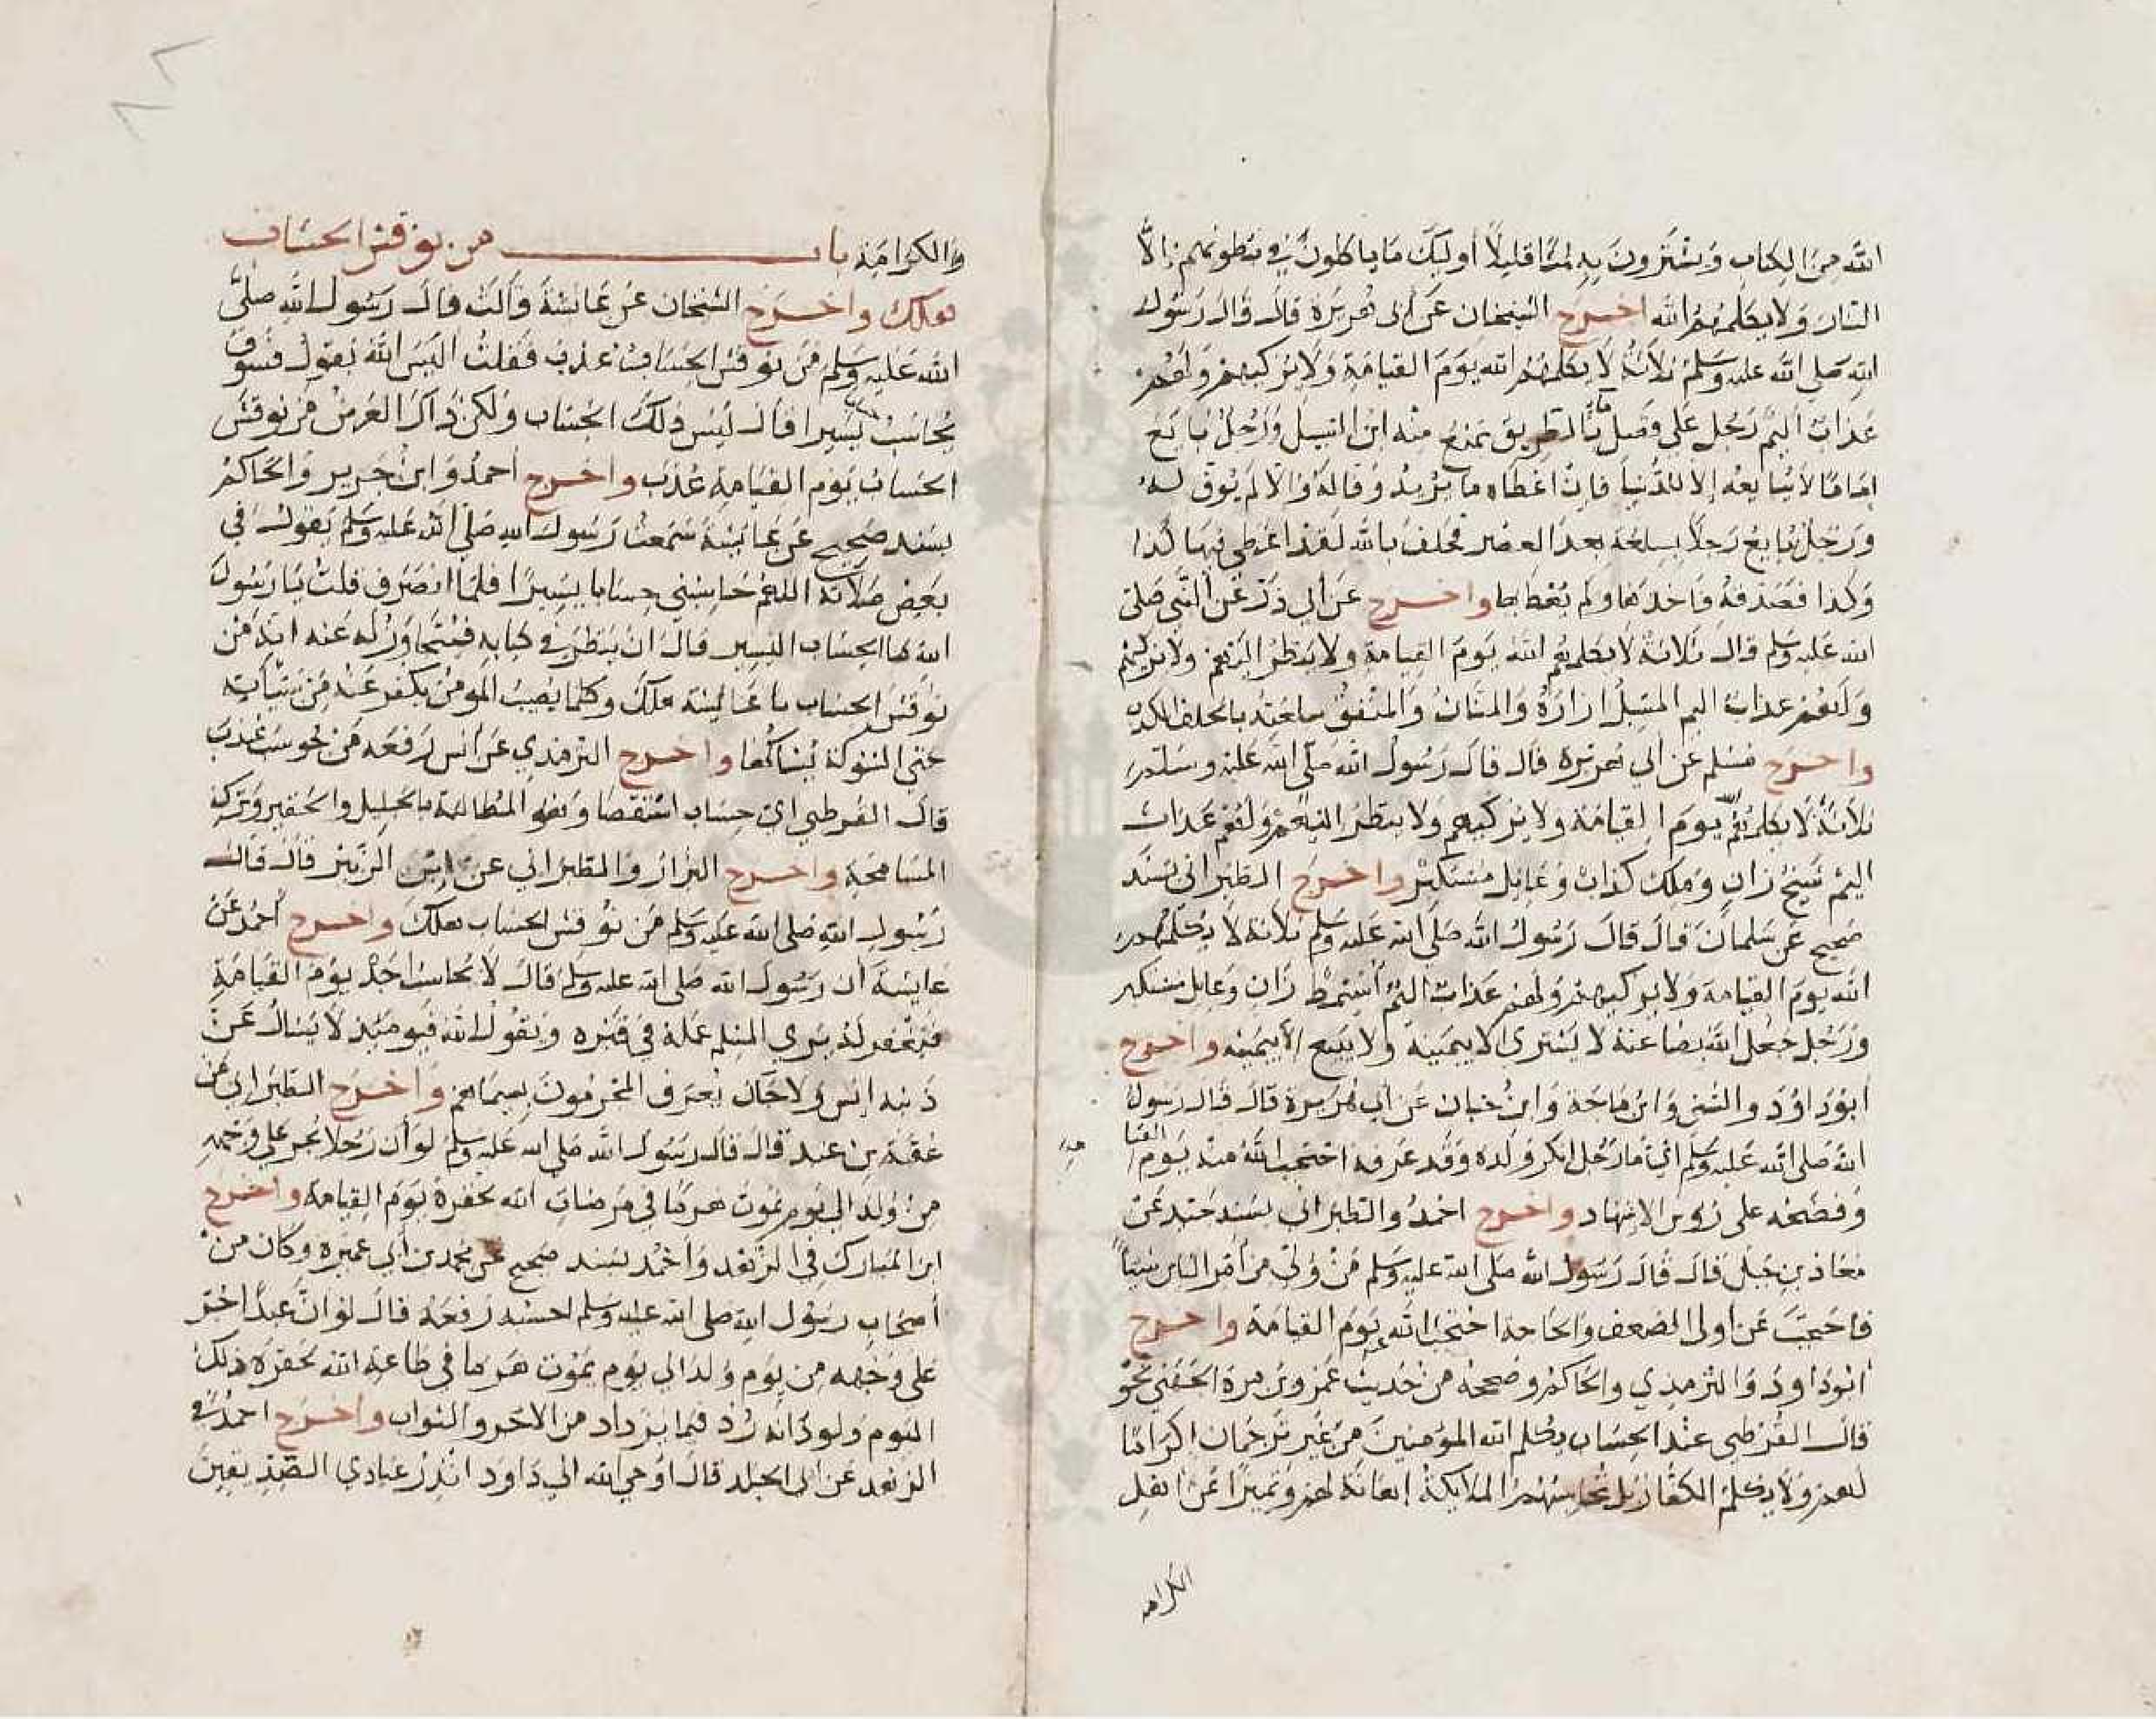 الله من الكتاب ويشترون به ثمنا قليلا أوليك ما ياكلون في بطونهم إلا
النار ولا يكلمهم الله اخرج الشيخان عن أبي هريرة قال قال رسول
الله صلى الله عليه وسلم ثلاثة لا يكلمهم الله يوم القيامة ولا يزكيهم ولهم
عذاب اليم رجل على فضل ماء بالطريق يمنع منه ابن السبيل ورجل بايع
اماما لا يبايعه إلا للدنيا فان اعطاه ما يريد وفا له والا لم يوف له
ورجل يبايع رجلا بسلعة بعد العصر فحلف بالله لقد اعطي فيها كذا
وكذا فصدقه فاخذها ولم يعط بها واخرج عن أبي ذر عن النبي صلى
الله عليه وسلم قال ثلاثة لا يكلمهم الله يوم القيامة ولا ينظر اليهم ولا يزكيهم
ولهم عذاب اليم المسبل ازاره والمنان والمنفق سلعته بالحلف الكذب
واخرج مسلم عن أبي هريرة قال قال رسول الله صلى الله عليه وسلم
ثلاثة لا يكلمهم الله يوم القيامة ولا يزكيهم ولا ينظر اليهم ولهم عذاب
اليم شيخ زان وملك كذاب وعايل مستكبر واخرج الطبراني بسند
صحيح عن سلمان قال قال رسول الله صلى الله عليه وسلم ثلاثة لا يكلمهم
الله يوم القيامة ولا يزكيهم ولهم عذاب اليم أشيمط زان وعايل مستكبر
ورجل جعل الله بضاعته لا يشتري الا بيمينه ولا يبيع الا بيمينه واخرج
ابو داود والنسي وابن ماجة وابن حبان عن أبي هريرة قال قال رسول
الله صلى الله عليه وسلم ايما رجل انكر ولده وقد عرفه احتجب الله منه يوم القيا مة
وفضحه على روس الاشهاد واخرج احمد والطبراني بسند جيد عن
معاذ بن جبل قال قال رسول الله صلى الله عليه وسلم من ولي من أمر الناس شيئا
فاحتجب عن أولى الضعف والحاجة احتجب الله عنه يوم القيامة واخرج
أبو داود والترمذي والحاكم وصححه من حديث عمرو بن مرة الجهني نحوه
قال القرطبي عند الحساب يكلم الله المؤمنين من غير ترجمان اكراما
لهم ولا يكلم الكفار بل تحاسبهم الملايكة إهانة لهم وتمييزا عن اهل
الكرامة
والكرامة باب من نوقش الحساب
هلك واخرج الشيخان عن عائشة قالت قال رسول الله صلى
الله عليه وسلم من نوقش الحساب عذب فقلت اليس الله يقول فسوف
يحاسب حسابا يسيرا قال ليس ذلك الحساب ولكن ذاك العرض من نوقش
الحساب يوم القيامة عذب واخرج احمد وابن جرير والحاكم
بسند صحيح عن عايشة سمعت رسول الله صلى الله عليه وسلم يقول في
بعض صلاته اللهم حاسبني حسابا يسيرا فلما انصرف قلت يا رسول
الله ما الحساب اليسير قال ان ينظر في كتابه فيتجاوز له عنه انه من
نوقش الحساب يا عائشة هلك وكلما يصيب المومن يكفر عنه من سيأته
حتى الشوكة يشاكها واخرج الترمذي عن أنس رفعه من حوسب عذب
قال القرطبي اي حساب استقصا وهو المطالبة بالجليل والحقير وترك
المسامحة واخرج البزار والطبراني عن ابن الزبير قال قال
رسول الله صلى الله عليه وسلم من نوقش الحساب هلك واخرج أحمد عن
عايشة أن رسول الله صلى الله عليه وسلم قال لا يحاسب احد يوم القيامة
فيغفر له يرى المسلم عمله في قبره ويقول الله فيومئذ لا يسأل عن
ذنبه إنس ولا جان يعرف المجرمون بسيماهم واخرج الطبراني عن
عقبة بن عبد قال قال رسول الله صلى الله عليه وسلم لو أن رجلا يجر على وجهه
من ولد الى يوم يموت هرما في مرضات الله لحقره يوم القيامة واخرج
ابن المبارك في الزهد واحمد بسند صحيح عن محمد بن أبي عميرة وكان من
أصحاب رسول الله صلى الله عليه وسلم احسبه رفعه قال لو ان عبدا خر
على وجهه من يوم ولد الى يوم يموت هرما في طاعة الله لحقره ذلك
اليوم ولود انه رد فيما يزداد من الاجر والثواب واخرج احمد في
الزهد عن ابي الجلد قال اوحى الله الى داود انذر عبادي الصديقين